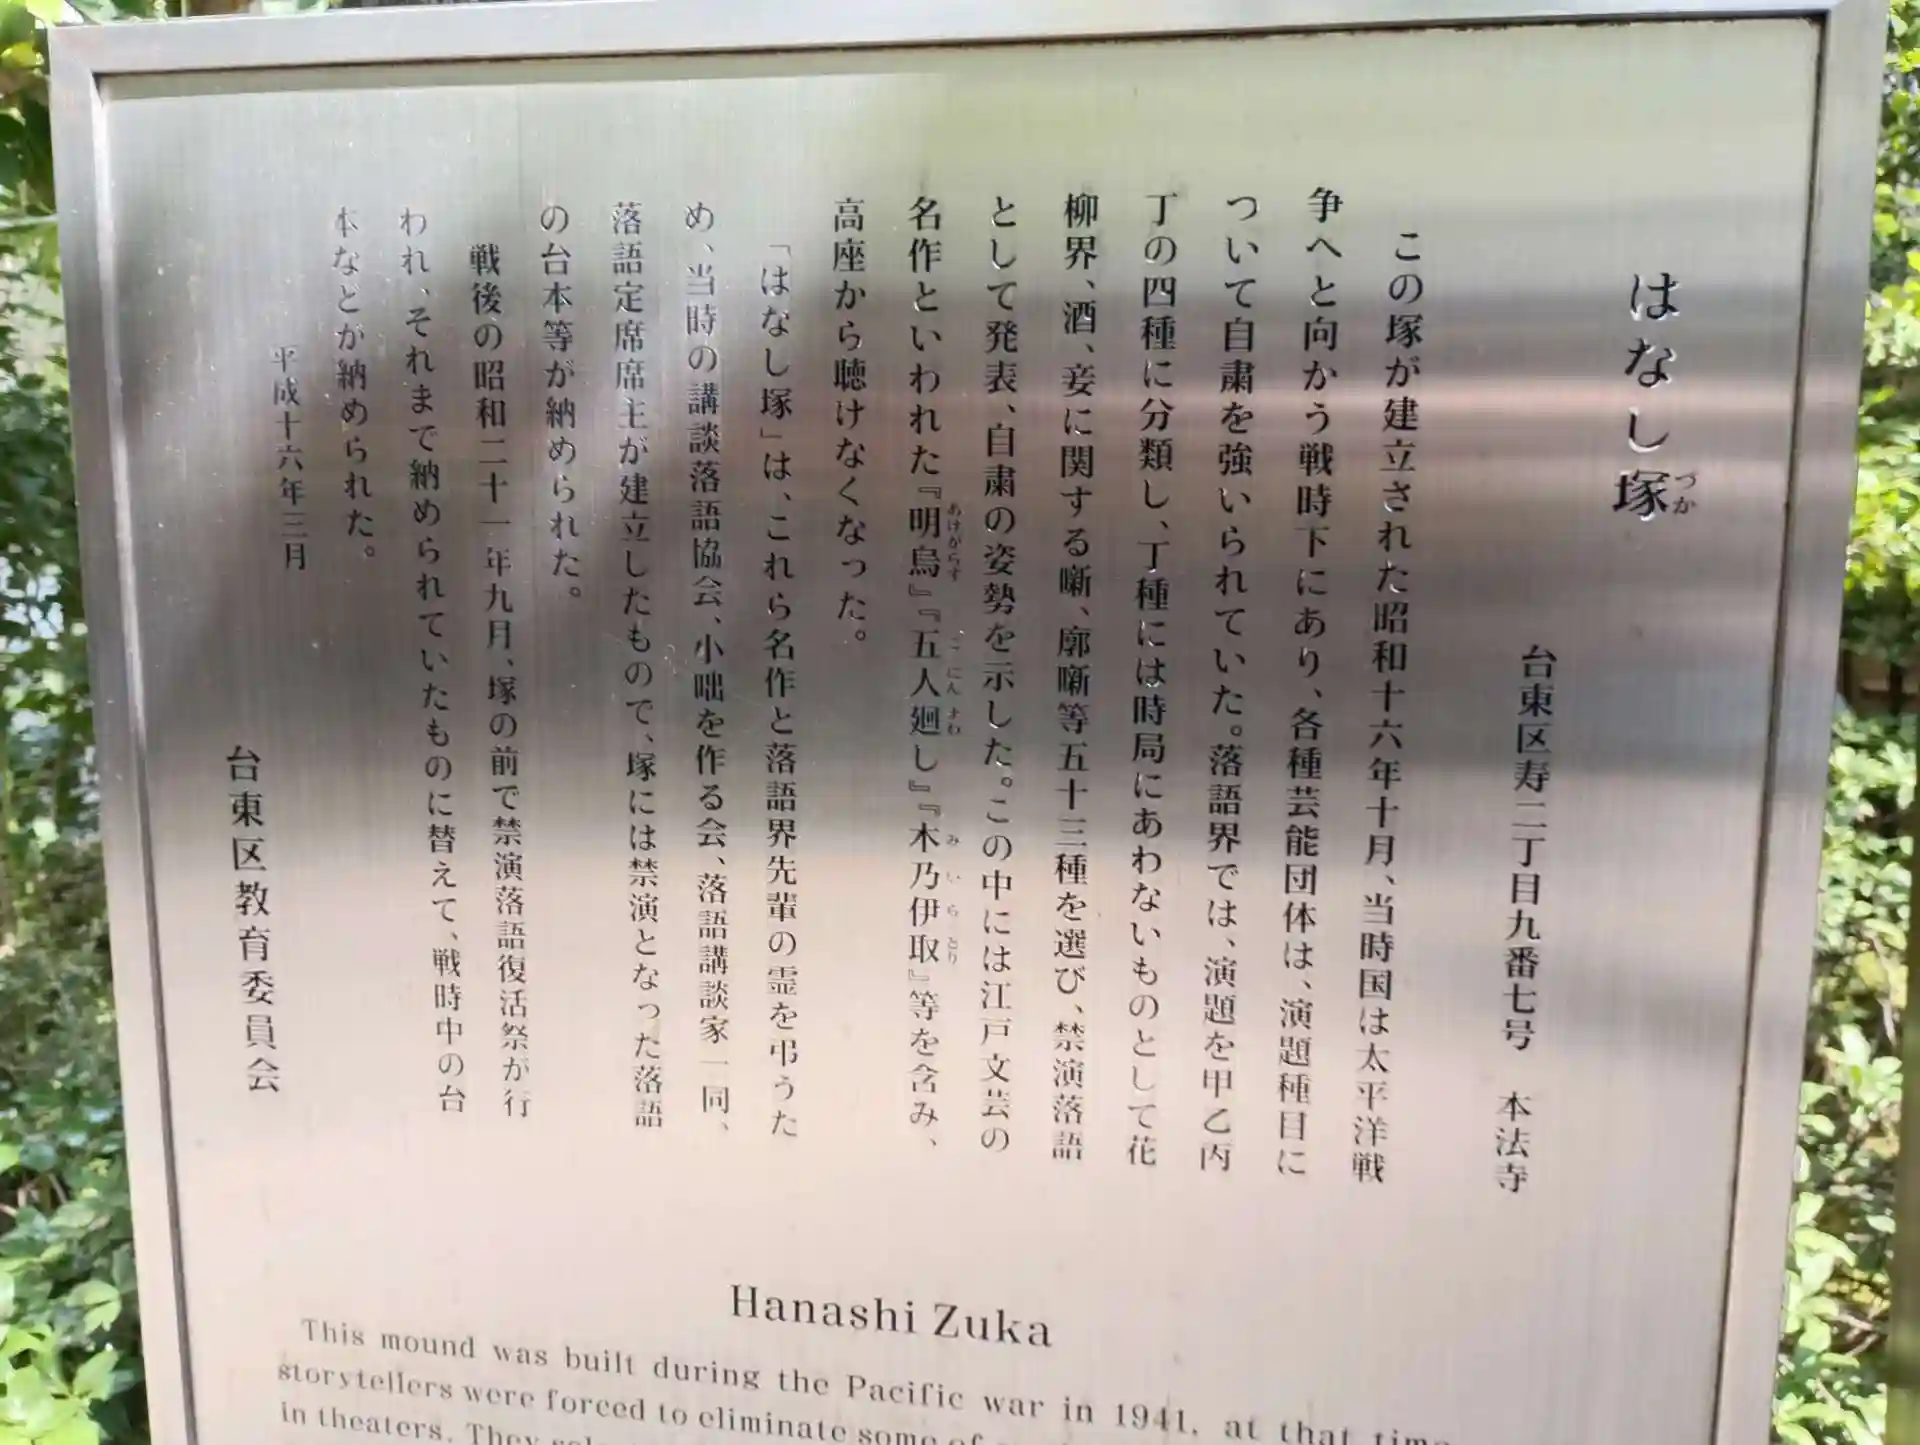 はなし塚
づか
台東区寿二丁目九番七号　本法寺
この塚が建立された昭和十六年十月、当時国は太平洋戦
争へと向かう戦時下にあり、各種芸能団体は、演題種目に
ついて自粛を強いられていた。落語界では、演題を甲乙丙
丁の四種に分類し、丁種には時局にあわないものとして花
柳界、酒、妾に関する噺、廓噺等五十三種を選び、禁演落語
として発表、自粛の姿勢を示した。この中には江戸文芸の
名作といわれた『明烏』『五人廻し』『木乃伊取』等を含み、
あけがらす　ごにんまわ　みいらとり
高座から聴けなくなった。
「はなし塚」は、これら名作と落語界先輩の霊を弔うた
め、当時の講談落語協会、小咄を作る会、落語講談家一同、
落語定席席主が建立したもので、塚には禁演となった落語
の台本等が納められた。
戦後の昭和二十一年九月、塚の前で禁演落語復活祭が行
われ、それまで納められていたものに替えて、戦時中の台
本などが納められた。
平成十六年三月
台東区教育委員会
Hanashi Zuka
This mound was built during the Pacific war in 1941, at that time
storytellers were forced to eliminate some of
in theaters. They